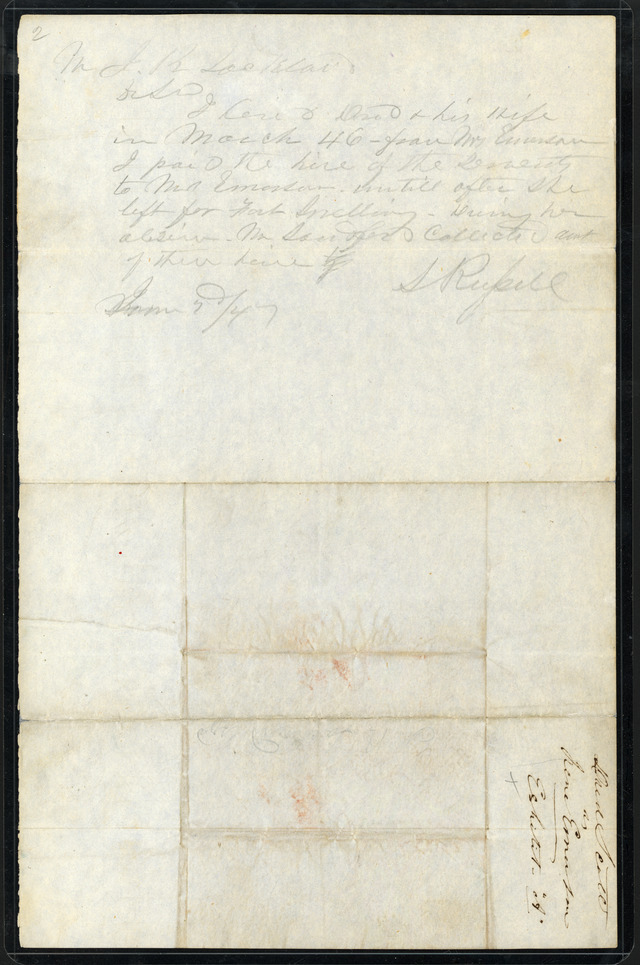 2
Mr J. R Lackland
Dr Sir
I hired Dred & his Wife
in March 46 - from Mrs Emerson
I paid the hire of the Servants
to Mrs Emerson. untill after she
left for Fort Snelling - During her
absence. Mr Sandford Collected
of their hire
S Russell
Dred Scott
vs
Irene Emerson
Exhibit "A"